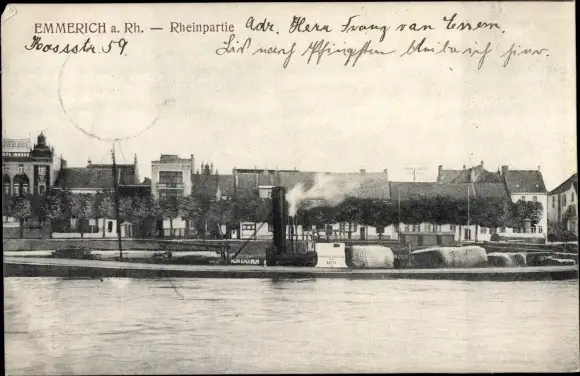 EMMERICH a. Rh. — Rheinpartie
Adr. Herr Franz van Essem.
Kasstr. 59
Bis nach Pfingsten bleibe ich hier.